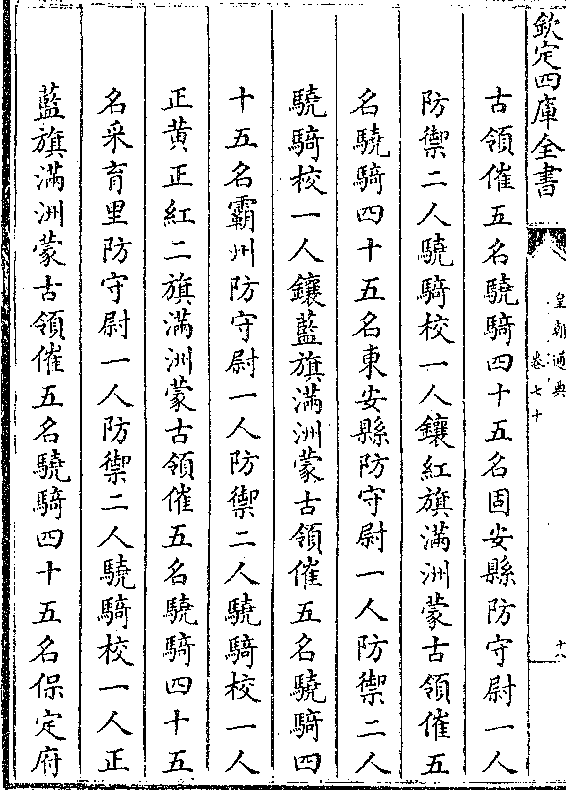 欽定四庫全書
皇朝通典
卷七十
十八
古領催五名驍騎四十五名固安縣防守尉一人
防禦二人驍騎校一人鑲紅旗滿洲蒙古領催五
名驍騎四十五名東安縣防守尉一人防禦二人
驍騎校一人鑲藍旗滿洲蒙古領催五名驍騎四
十五名霸州防守尉一人防禦二人驍騎校一人
正黄正紅二旗滿洲蒙古領催五名驍騎四十五
名采育里防守尉一人防禦二人驍騎校一人正
藍旗滿洲蒙古領催五名驍騎四十五名保定府